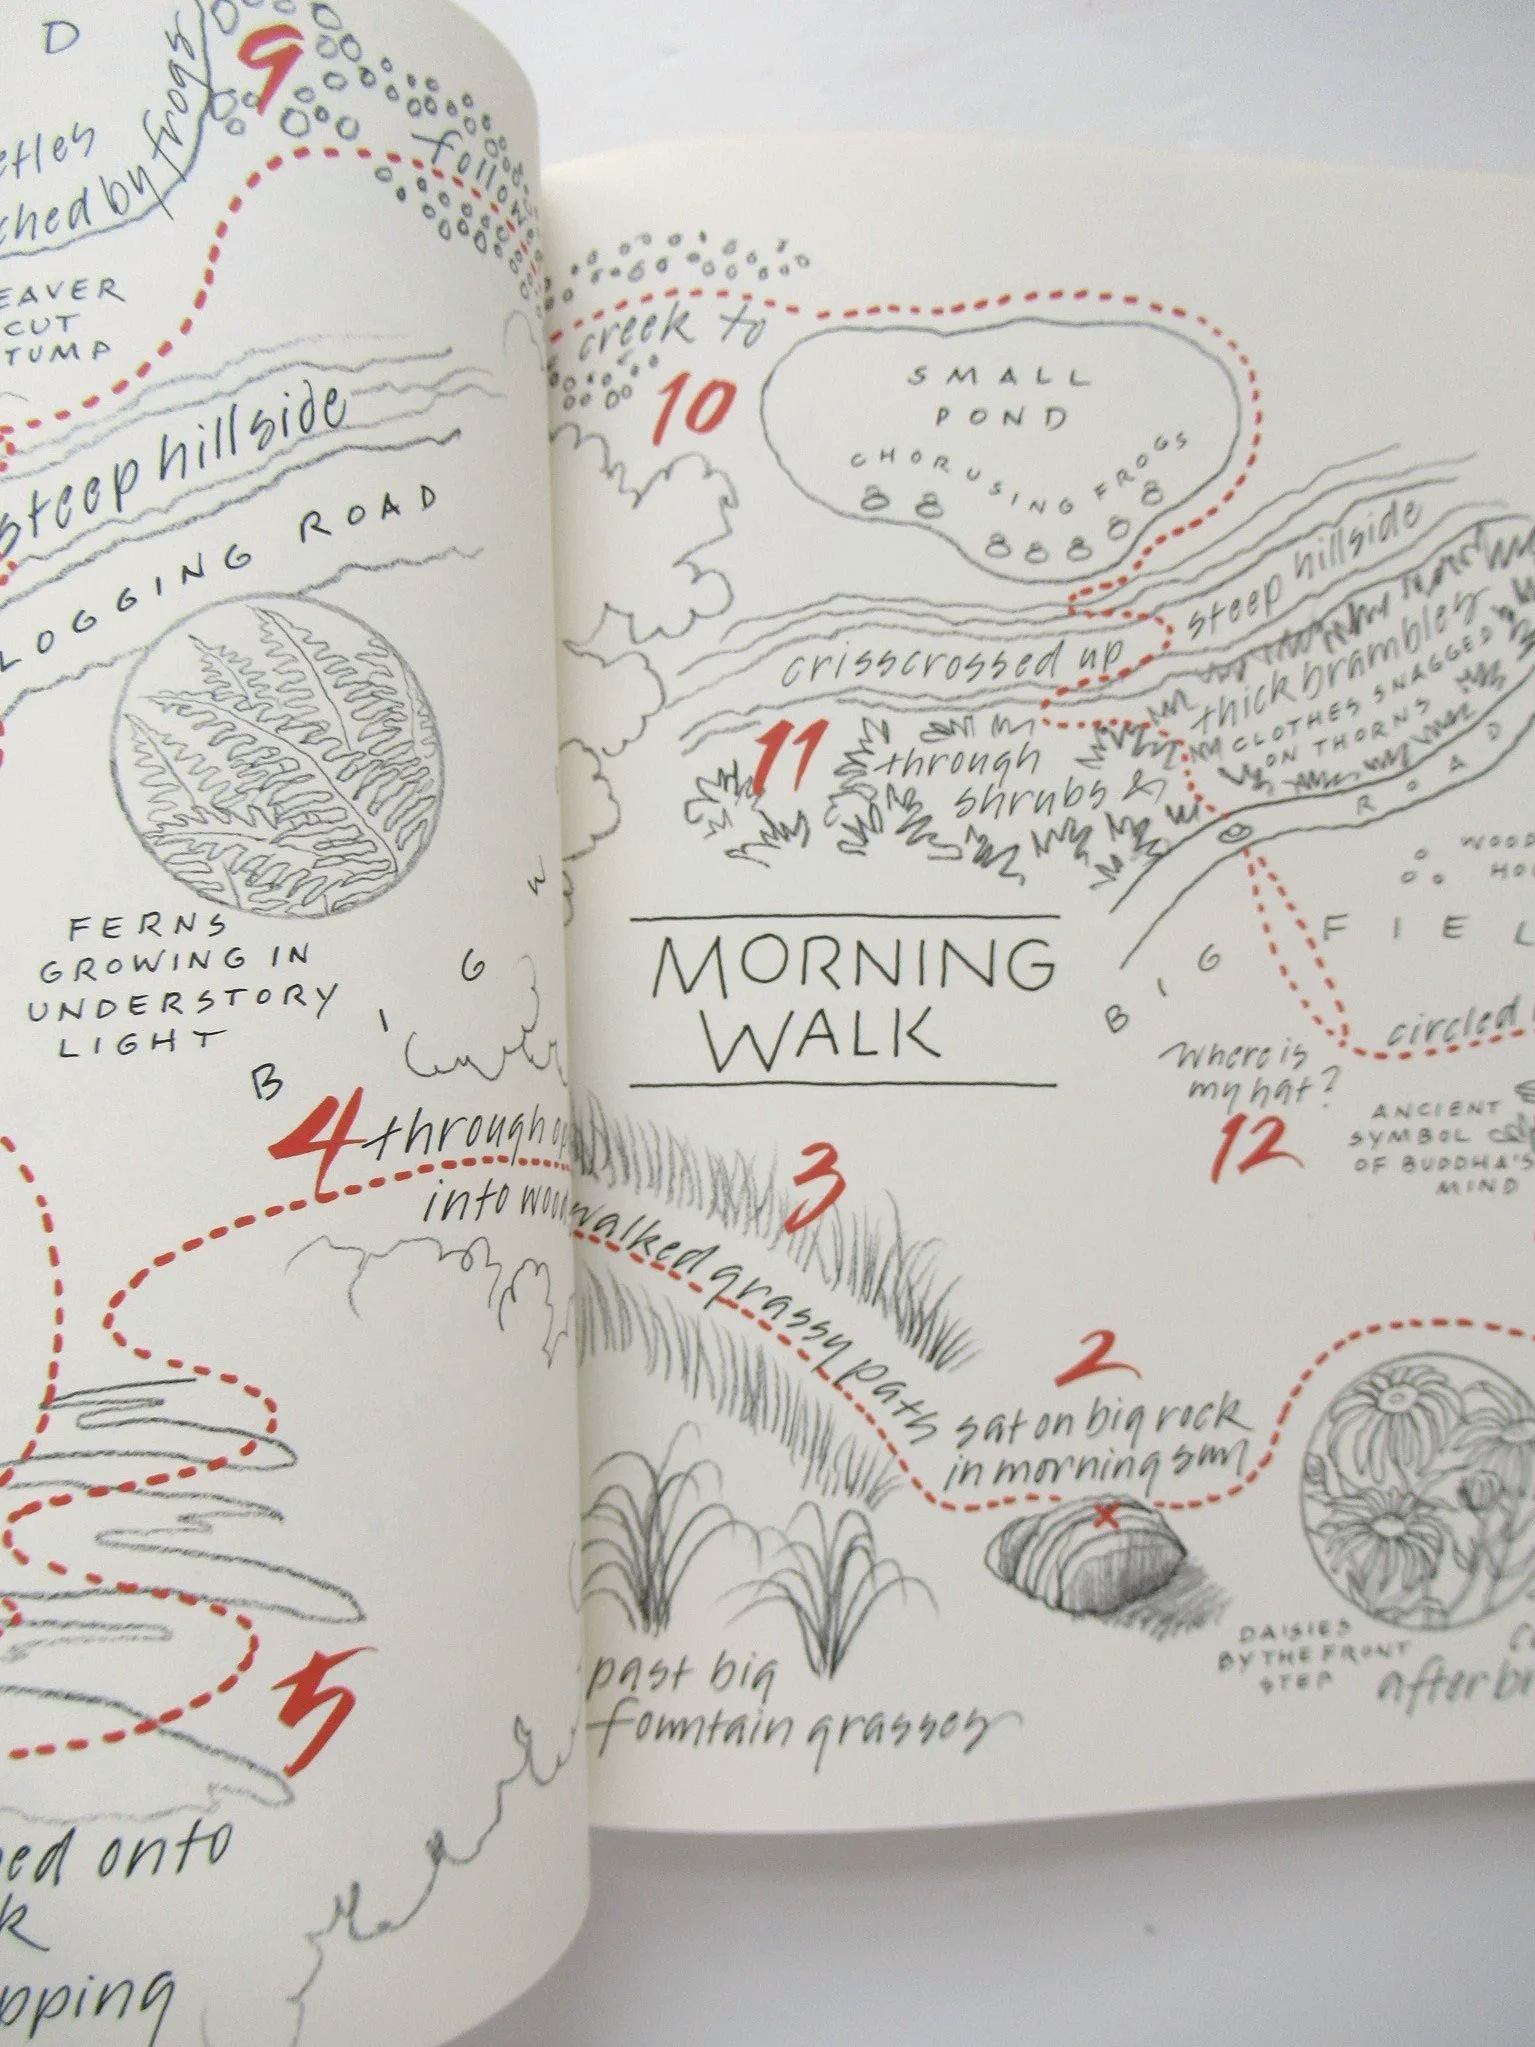 D
9
ched by frogs
follow
EAVER
CUT
TUMP
steep hillside
LOGGING ROAD
FERNS
GROWING IN
UNDERSTORY
LIGHT
BIG W
4 through
into
5
onto
creek to
10
SMALL
POND
CHORUSING FROGS
crisscrossed up
steep hillside
11
through
shrubs &
thick brambles
CLOTHES SNAGGED
ON THORNS
ROAD
MORNING
WALK
BIG FIEL
circled
Where is
my hat?
12
ANCIENT
SYMBOL
OF BUDDHA'S
MIND
3
walked grassy path
2
sat on big rock
in morning sun
past big
fountain grasses
DAISIES
BY THE FRONT
STEP
after